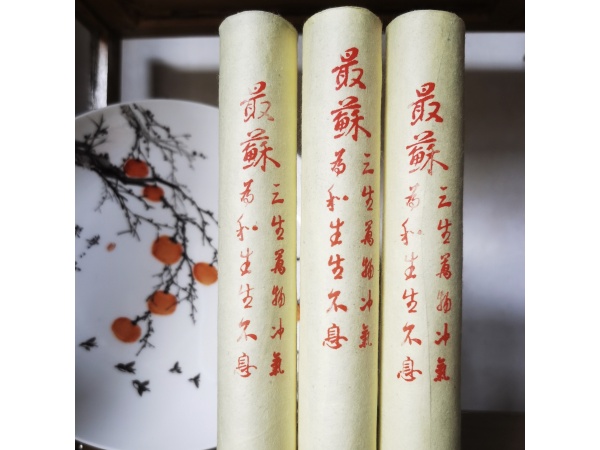 最蘇
三生萬物冲氣
為和生生不息
最蘇
三生萬物冲氣
為和生生不息
最蘇
三生萬物冲氣
為和生生不息